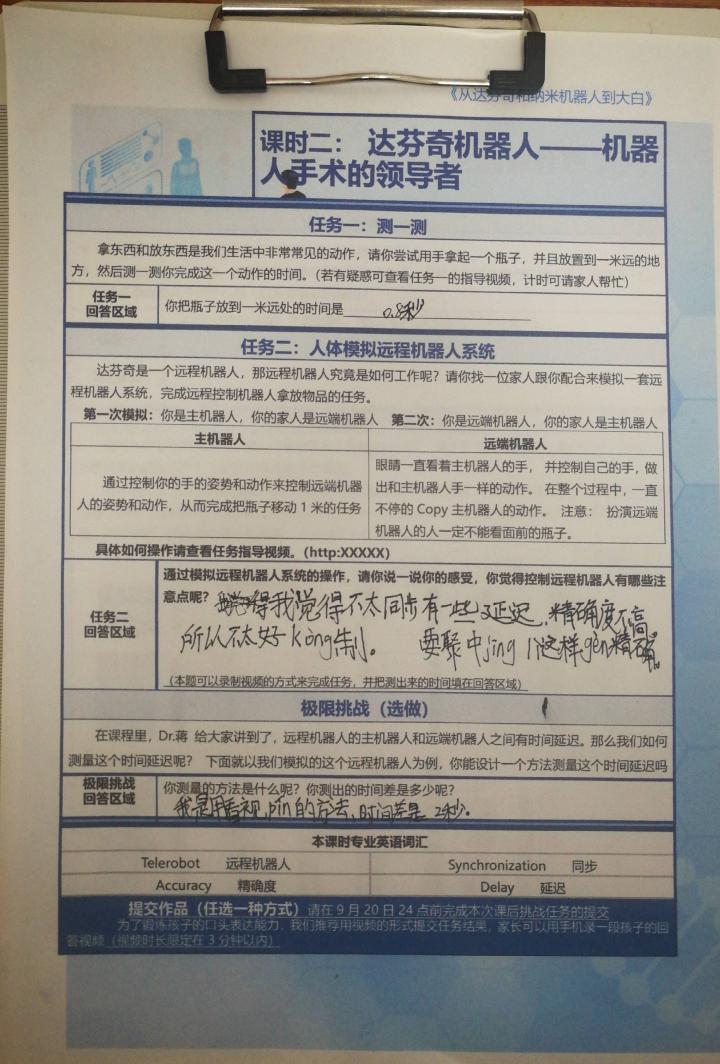 《从达芬奇和纳米机器人到大白》
课时二： 达芬奇机器人——机器
人手术的领导者
任务一：测一测
拿东西和放东西是我们生活中非常常见的动作，请你尝试用手拿起一个瓶子，并且放置到一米远的地
方，然后测一测你完成这一个动作的时间。（若有疑惑可查看任务一的指导视频，计时可请家人帮忙）
任务一
回答区域
你把瓶子放到一米远处的时间是 0.8秒
任务二：人体模拟远程机器人系统
达芬奇是一个远程机器人，那远程机器人究竟是如何工作呢？请你找一位家人跟你配合来模拟一套远
程机器人系统，完成远程控制机器人拿放物品的任务。
第一次模拟：你是主机器人，你的家人是远端机器人 第二次：你是远端机器人，你的家人是主机器人
主机器人
通过控制你的手的姿势和动作来控制远端机器
人的姿势和动作，从而完成把瓶子移动 1 米的任务
远端机器人
眼睛一直看着主机器人的手， 并控制自己的手，做
出和主机器人手一样的动作。 在整个过程中，一直
不停的 Copy 主机器人的动作。 注意： 扮演远端
机器人的人一定不能看面前的瓶子。
具体如何操作请查看任务指导视频。（http:XXXXX）
任务二
回答区域
通过模拟远程机器人系统的操作，请你说一说你的感受，你觉得控制远程机器人有哪些注
意点呢？ 我觉得不太同步有一些延迟，精确度不高。
所以不太好kòng制。 要聚中jīng 这样gèn精确。
（本题可以录制视频的方式来完成任务，并把测出来的时间填在回答区域）
极限挑战（选做）
在课程里，Dr.蒋 给大家讲到了，远程机器人的主机器人和远端机器人之间有时间延迟。那么我们如何
测量这个时间延迟呢？ 下面就以我们模拟的这个远程机器人为例，你能设计一个方法测量这个时间延迟吗
极限挑战
回答区域
你测量的方法是什么呢？你测出的时间差是多少呢？
我是用看视pín的方法，时间差是 2秒。
本课时专业英语词汇
Telerobot 远程机器人
Synchronization 同步
Accuracy 精确度
Delay 延迟
提交作品（任选一种方式）请在 9 月 20 日 24 点前完成本次课后挑战任务的提交
为了锻炼孩子的口头表达能力，我们推荐用视频的形式提交任务结果，家长可以用手机录一段孩子的回
答视频（视频时长限定在 3 分钟以内）